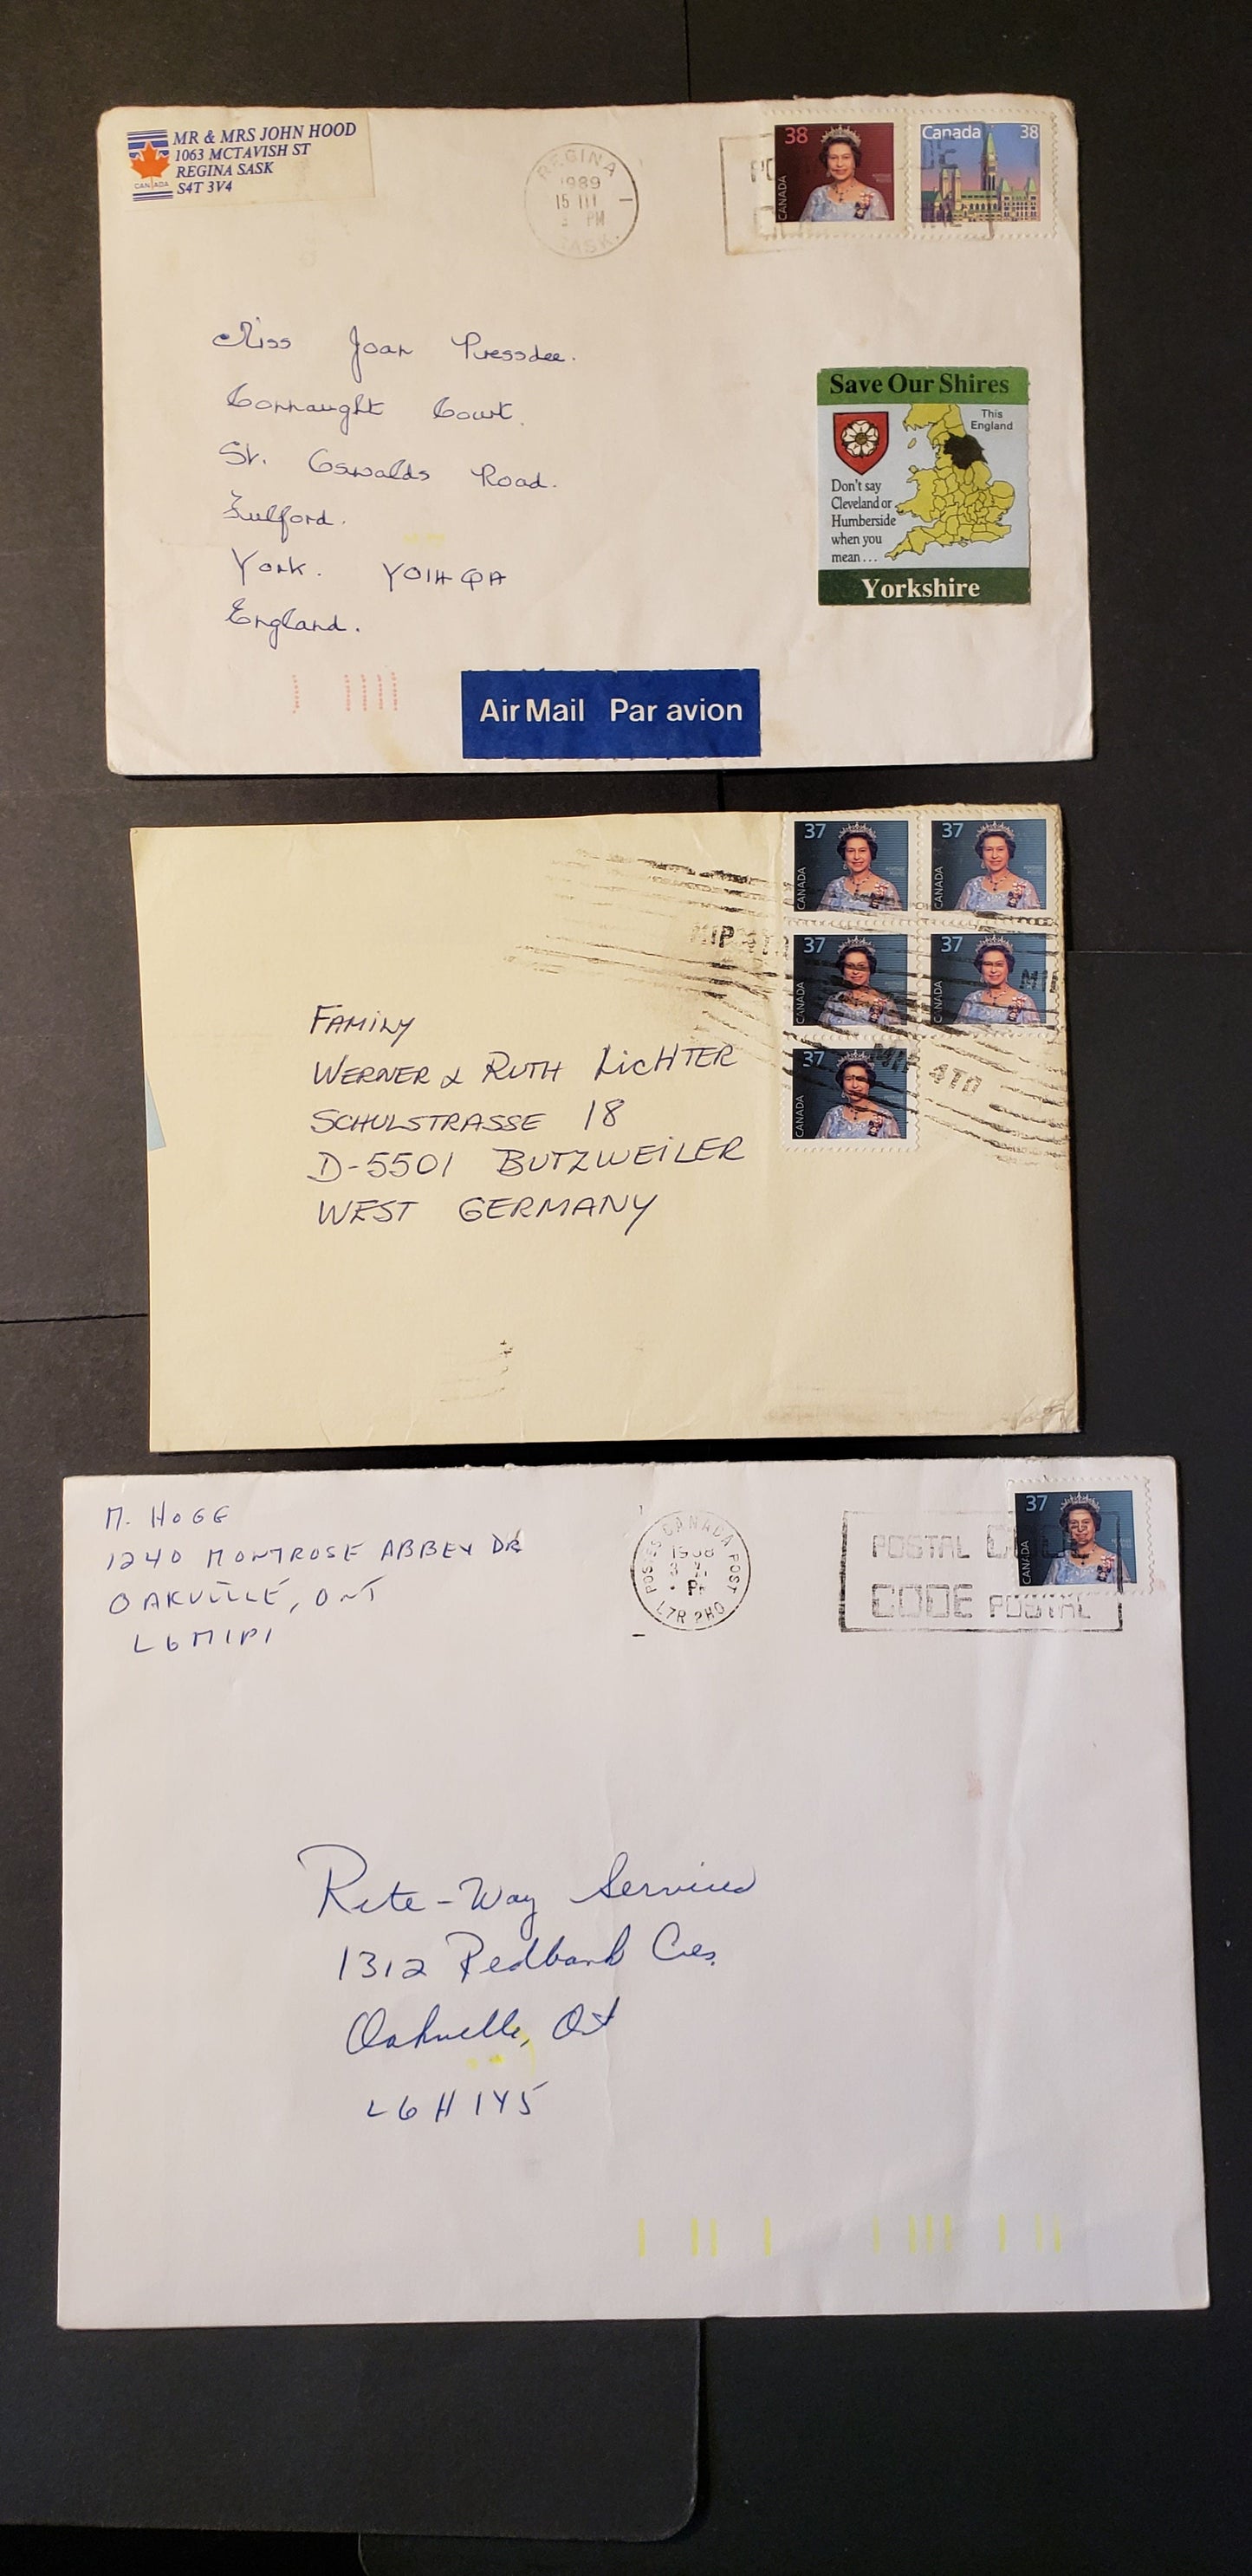 MR & MRS JOHN HOOD
1063 MCTAVISH ST
REGINA SASK
S4T 3V4
CANADA
REGINA
1989
15 III
PM
SASK.
38
CANADA
Canada 38
Miss Joan Pressdee.
Connaught Court.
St. Oswalds Road.
Fulford.
York. YO1H QA
England.
Save Our Shires
This
England
Don't say
Cleveland or
Humberside
when you
mean...
Yorkshire
Air Mail Par avion
37
CANADA
37
CANADA
37
CANADA
37
CANADA
37
CANADA
MIP 4T0
FAMILY
WERNER & RUTH LICHTER
SCHULSTRASSE 18
D-5501 BUTZWEILER
WEST GERMANY
M. HOGG
1240 MONTROSE ABBEY DR
OAKVILLE, ONT
L6M1P1
POSTES CANADA POST
L7R 2H0
POSTAL CODE
CODE POSTAL
37
CANADA
Rite-Way Services
1312 Redbank Cres.
Oakville, Ont
L6H 1Y5